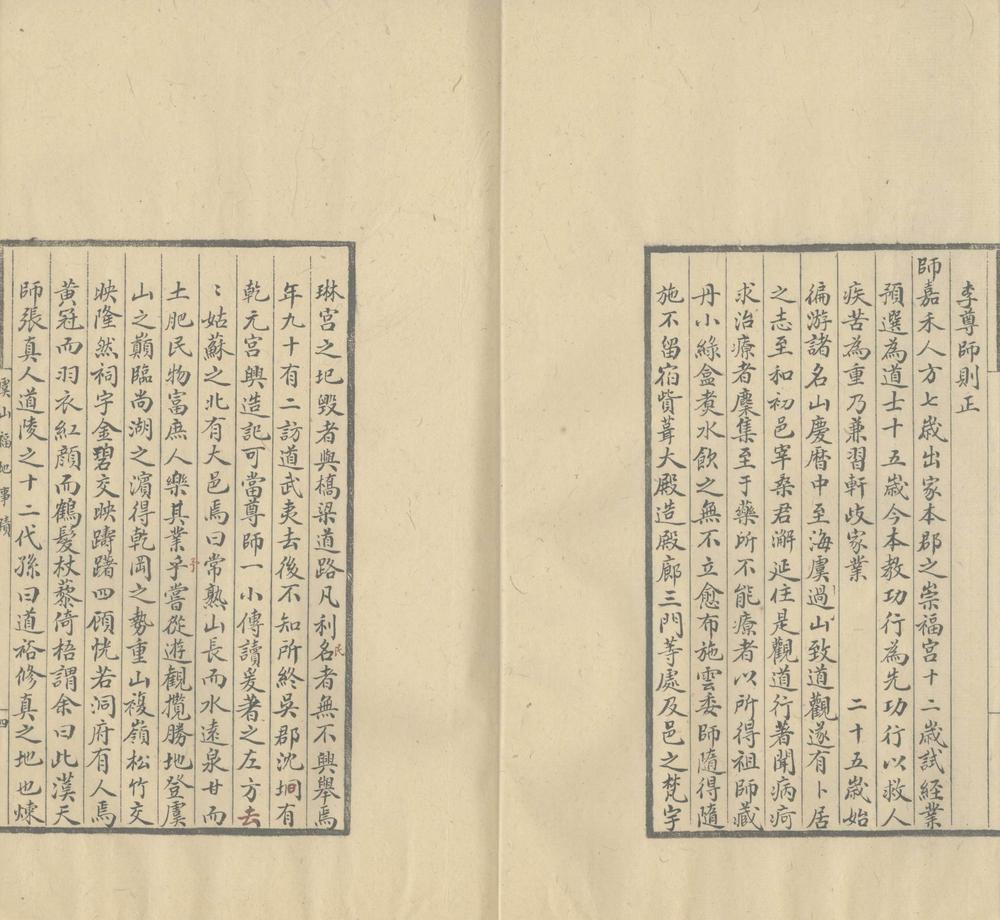 李尊師則正
師嘉禾人方七歲出家本郡之崇福宮十二歲試經業
預選為道士十五歲今本教功行為先功行以救人
疾苦為重乃兼習軒歧家業　二十五歲始
徧游諸名山慶曆中至海虞過山致道觀遂有卜居
之志至和初邑宰桑君澥延住是觀道行著聞病疴
求治療者麇集至于藥所不能療者以所得祖師藏
丹小綠盒煑水飲之無不立愈布施雲委師隨得隨
施不留宿貲葺大殿造殿廊三門等處及邑之梵宇
琳宮之圮毀者與橋梁道路凡利名者無不興舉焉
民
年九十有二訪道武夷去後不知所終吳郡沈坰有
乾元宮興造記可當尊師一小傳讀爰著之左方去
〻姑蘇之北有大邑焉曰常熟山長而水遠泉甘而
土肥民物富庶人樂其業乎嘗從遊觀攬勝地登虞
予
山之巔臨尚湖之濱得乾岡之勢重山複嶺松竹交
映隆然祠宇金碧交映躊躇四顧恍若洞府有人焉
黃冠而羽衣紅顏而鶴髮杖藜倚梧謂余曰此漢天
師張真人道陵之十二代孫曰道裕修真之地也煉
虞山福地事蹟
四